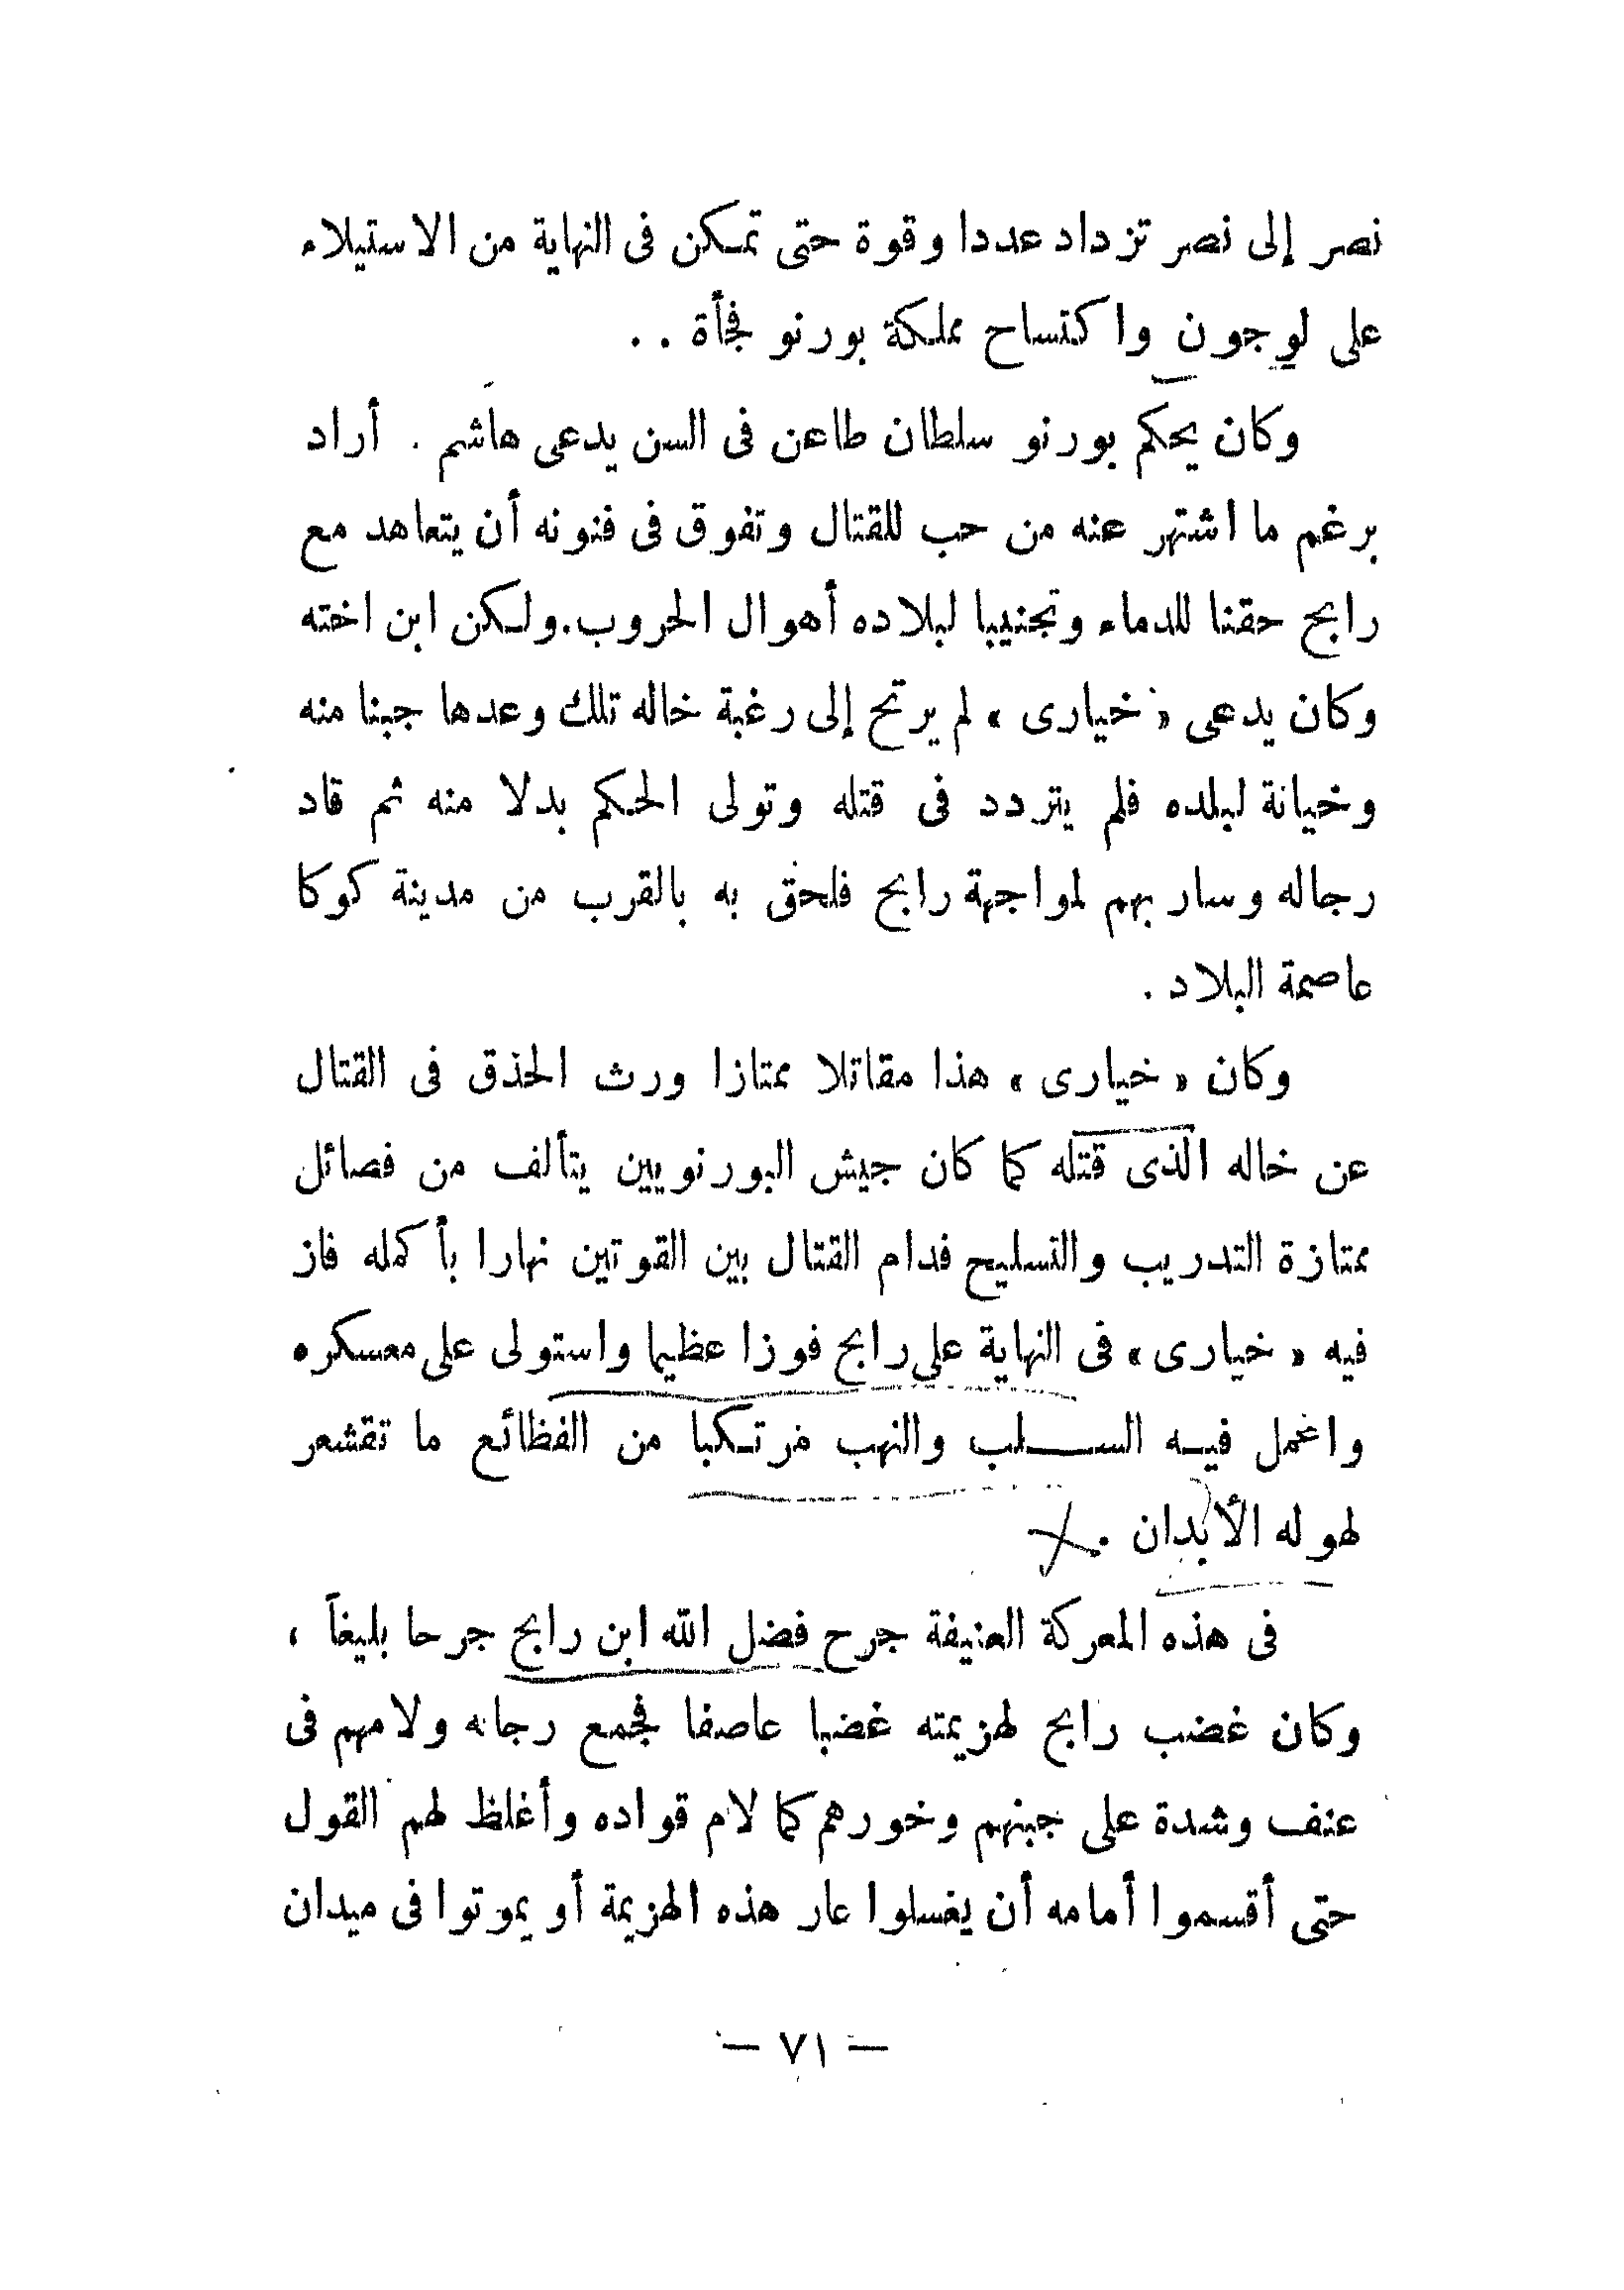 نصر إلى نصر تزداد عددا وقوة حتى تمكن فى النهاية من الاستيلاء
على لوجون واكتساح مملكة بورنو فجأة . .
وكان يحكم بورنو سلطان طاعن فى السن يدعى هاشم . أراد
برغم ما اشتهر عنه من حب للقتال وتفوق فى فنونه أن يتعاهد مع
رابح حقنا للدماء وتجنيبا لبلاده أهوال الحروب.ولكن ابن اخته
وكان يدعى « خيارى » لم يرتح إلى رغبة خاله تلك وعدها جبنا منه
وخيانة لبلده فلم يتردد فى قتله وتولى الحكم بدلا منه ثم قاد
رجاله وسار بهم لمواجهة رابح فلحق به بالقرب من مدينة كوكا
عاصمة البلاد .
وكان « خيارى » هذا مقاتلا ممتازا ورث الحذق فى القتال
عن خاله الذى قتله كما كان جيش البورنويين يتألف من فصائل
ممتازة التدريب والتسليح فدام القتال بين القوتين نهارا بأكمله فاز
فيه « خيارى » فى النهاية على رابح فوزا عظيما واستولى على معسكره
واعمل فيه السلب والنهب مرتكبا من الفظائع ما تقشعر
لهوله الأبدان .
فى هذه المعركة العنيفة جرح فضل الله ابن رابح جرحا بليغاً ،
وكان غضب رابح لهزيمته غضبا عاصفا فجمع رجاله ولامهم فى
عنف وشدة على جبنهم وخورهم كما لام قواده وأغلظ لهم القول
حتى أقسموا أمامه أن يغسلوا عار هذه الهزيمة أو يموتوا فى ميدان
— ٧١ —